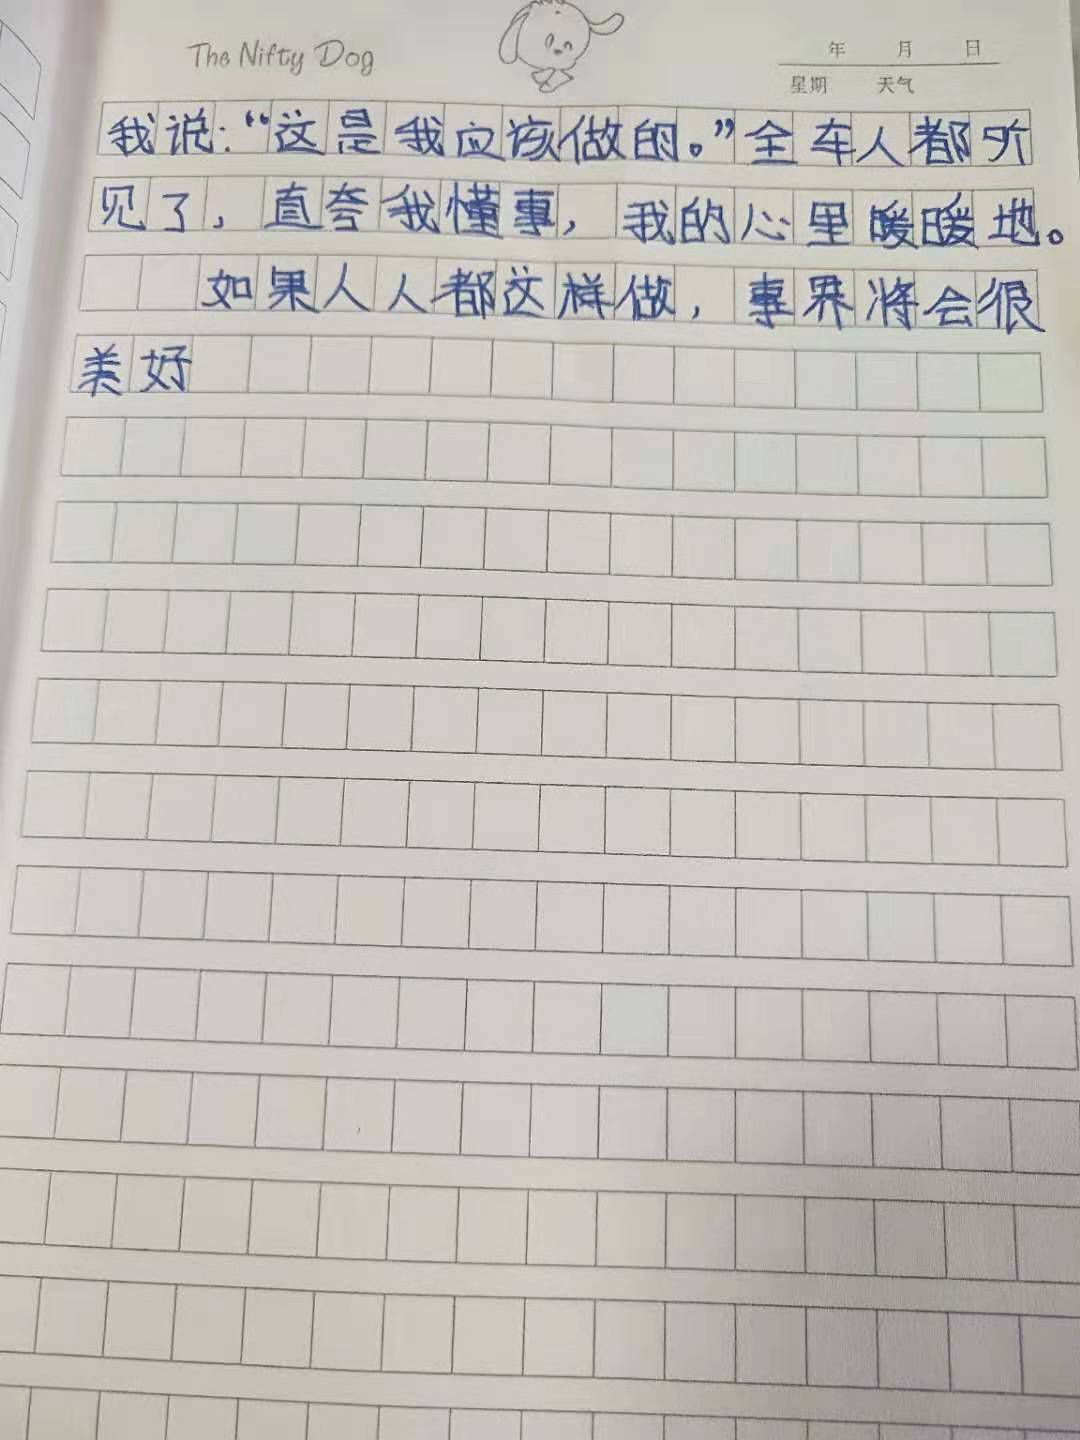 The Nifty Dog
年 月 日
星期 天气
我说：“这是我应该做的。”全车人都听
见了，直夸我懂事，我的心里暖暖地。
如果人人都这样做，事界将会很
美好